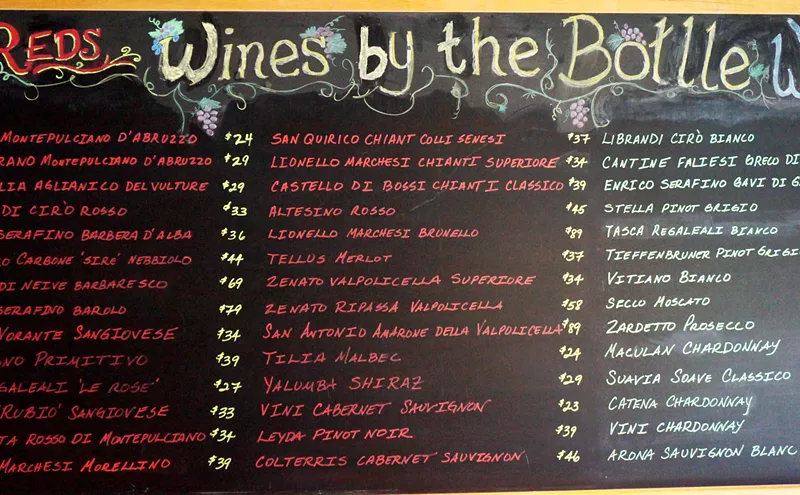 REDS Wines by the Botlle W
MONTEPULCIANO D'ABRUZZO $24
RANO MONTEPULCIANO D'ABRUZZO $29
LIA AGLIANICO DEL VULTURE $29
DI CIRÒ ROSSO $33
SERAFINO BARBERA D'ALBA $36
O CARBONE 'SIRE' NEBBIOLO $44
DI NEIVE BARBARESCO $69
SERAFINO BAROLO $79
VORANTE SANGIOVESE $34
NO PRIMITIVO $39
GALEALI 'LE ROSE' $27
'RUBIO' SANGIOVESE $33
TA ROSSO DI MONTEPULCIANO $34
MARCHESI MORELLINO $39
SAN QUIRICO CHIANT COLLI SENESI $37
LIONELLO MARCHESI CHIANTI SUPERIORE $34
CASTELLO DI BOSSI CHIANTI CLASSICO $39
ALTESINO ROSSO $45
LIONELLO MARCHESI BRUNELLO $89
TELLUS MERLOT $37
ZENATO VALPOLICELLA SUPERIORE $34
ZENATO RIPASSA VALPOLICELLA $58
SAN ANTONIO AMARONE DELLA VALPOLICELLA $89
TILIA MALBEC $24
YALUMBA SHIRAZ $29
VINI CABERNET SAUVIGNON $23
LEYDA PINOT NOIR $39
COLTERRIS CABERNET SAUVIGNON $46
LIBRANDI CIRÒ BIANCO
CANTINE FALIESI GRECO DI
ENRICO SERAFINO GAVI DI G
STELLA PINOT GRIGIO
TASCA REGALEALI BIANCO
TIEFFENBRUNER PINOT GRIGIO
VITIANO BIANCO
SECCO MOSCATO
ZARDETTO PROSECCO
MACULAN CHARDONNAY
SUAVIA SOAVE CLASSICO
CATENA CHARDONNAY
VINI CHARDONNAY
ARONA SAUVIGNON BLANC